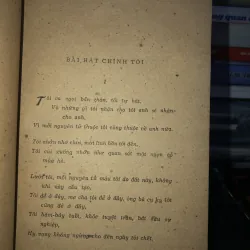 BÀI HÁT CHÍNH TÔI
1
Tôi ca ngợi bản thân, tôi tự hát,
Và những gì tôi nhận cho tôi anh sẽ nhận
cho anh,
Vì mỗi nguyên tử thuộc tôi cũng thuộc về anh nữa.
Tôi nhàn nhã chơi, mời linh hồn tôi đến,
Tôi nhàn nhìn quan sát một ngọn cỏ
mùa hè.
Lưỡi tôi, mỗi nguyên tử máu tôi do đất này, không
khí này cấu tạo,
Tôi đẻ ở đây, mẹ cha tôi đẻ ở đây, ông bà cụ kỵ tôi
cũng đẻ ở đây,
Tôi, bảy tuổi, khỏe tuyệt trần, bắt đầu sự
nghiệp,
Hy vọng không ngừng cho đến ngày tôi chết.